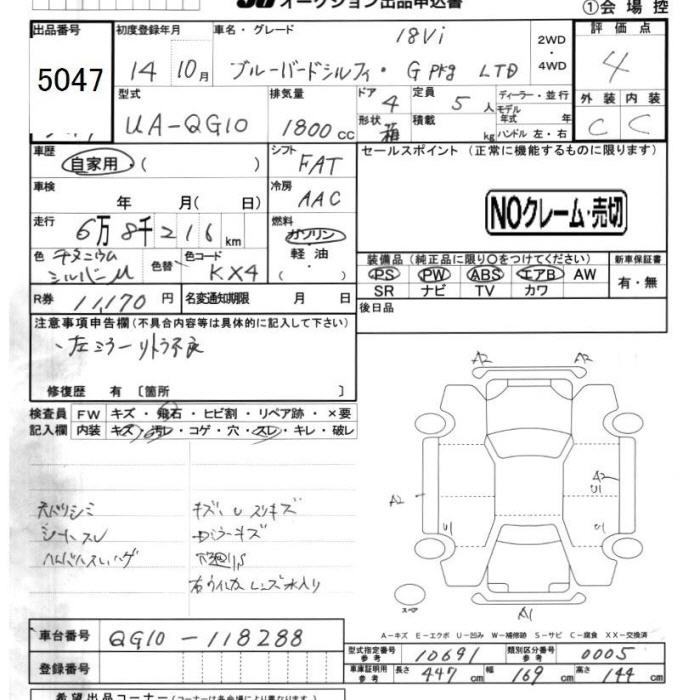 オークション出品申込書
①会場控
出品番号 初度登録年月 車名・グレード 18Vi 2WD 評価点
5047 14年 10月 ブルーバードシルフィ・G Pkg LTD ・4WD 4
型式 排気量 ドア 4 定員 5人 ディーラー・並行 外装 内装
UA-QG10 1800cc 形状 箱 積載 kg モデル年式 年 C C
ハンドル 左・右
車歴 自家用 ( ) シフト FAT セールスポイント (正常に機能するものに限ります)
車検 年 月( 日) 冷房 AAC
NOクレーム・売切
走行 6万8千216km 燃料 ガソリン
軽油・
色 チタニウムシルバーM 色替 色コード KX4
装備品 (純正品に限り○をつけてください) 新車保証書
PS PW ABS エアB AW 有・無
SR ナビ TV カワ
R券 11,170円 名変通知期限 月 日 後日品
注意事項申告欄 (不具合内容等は具体的に記入して下さい)
・左ミラーリトラ不良
修復歴 有 〔箇所 〕
検査員 FW キズ・飛石・ヒビ割・リペア跡・×要
記入欄 内装 キズ・汚レ・コゲ・穴・スレ・キレ・破レ
A2 A2
A2 A2
U1
U1 U1
天バリシミ キズ、U スリキズ
シートスレ
右ウインカレンズ水入り
スペア A1
A-キズ E-エクボ U-凹み W-補修跡 S-サビ C-腐食 XX-交換済
車台番号 QG10-118288
型式指定番号 参考 10691 類別区分番号 参考 0005
登録番号 車庫証明用 参考 長さ 447cm 幅 169cm 高さ 144cm
希望出品コーナー